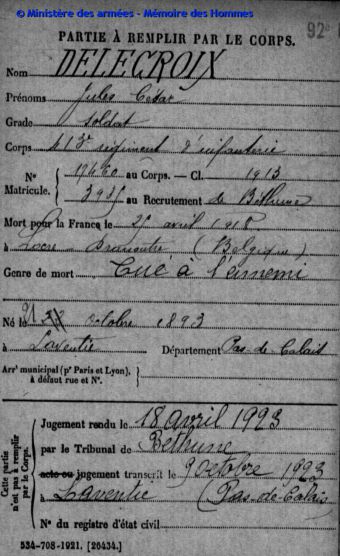 © Ministère des armées - Mémoire des Hommes
92e
PARTIE À REMPLIR PAR LE CORPS.
Nom DELECROIX
Prénoms Jules César
Grade soldat
Corps 413e régiment d'infanterie
N° 17660 au Corps. — Cl. 1913
Matricule. 3935 au Recrutement de Béthune
Mort pour la France le 25 avril 1918
à Locre (Belgique)
Genre de mort Tué à l'ennemi
Né le 21 octobre 1893
à Laventie Département Pas-de-Calais
Arrt municipal (pr Paris et Lyon),
à défaut rue et N°.
Cette partie n'est pas à remplir par le Corps.
Jugement rendu le 18 avril 1923
par le Tribunal de Béthune
acte ou jugement transcrit le 9 octobre 1923
à Laventie (Pas-de-Calais)
N° du registre d'état civil
534-708-1921. [26434.]